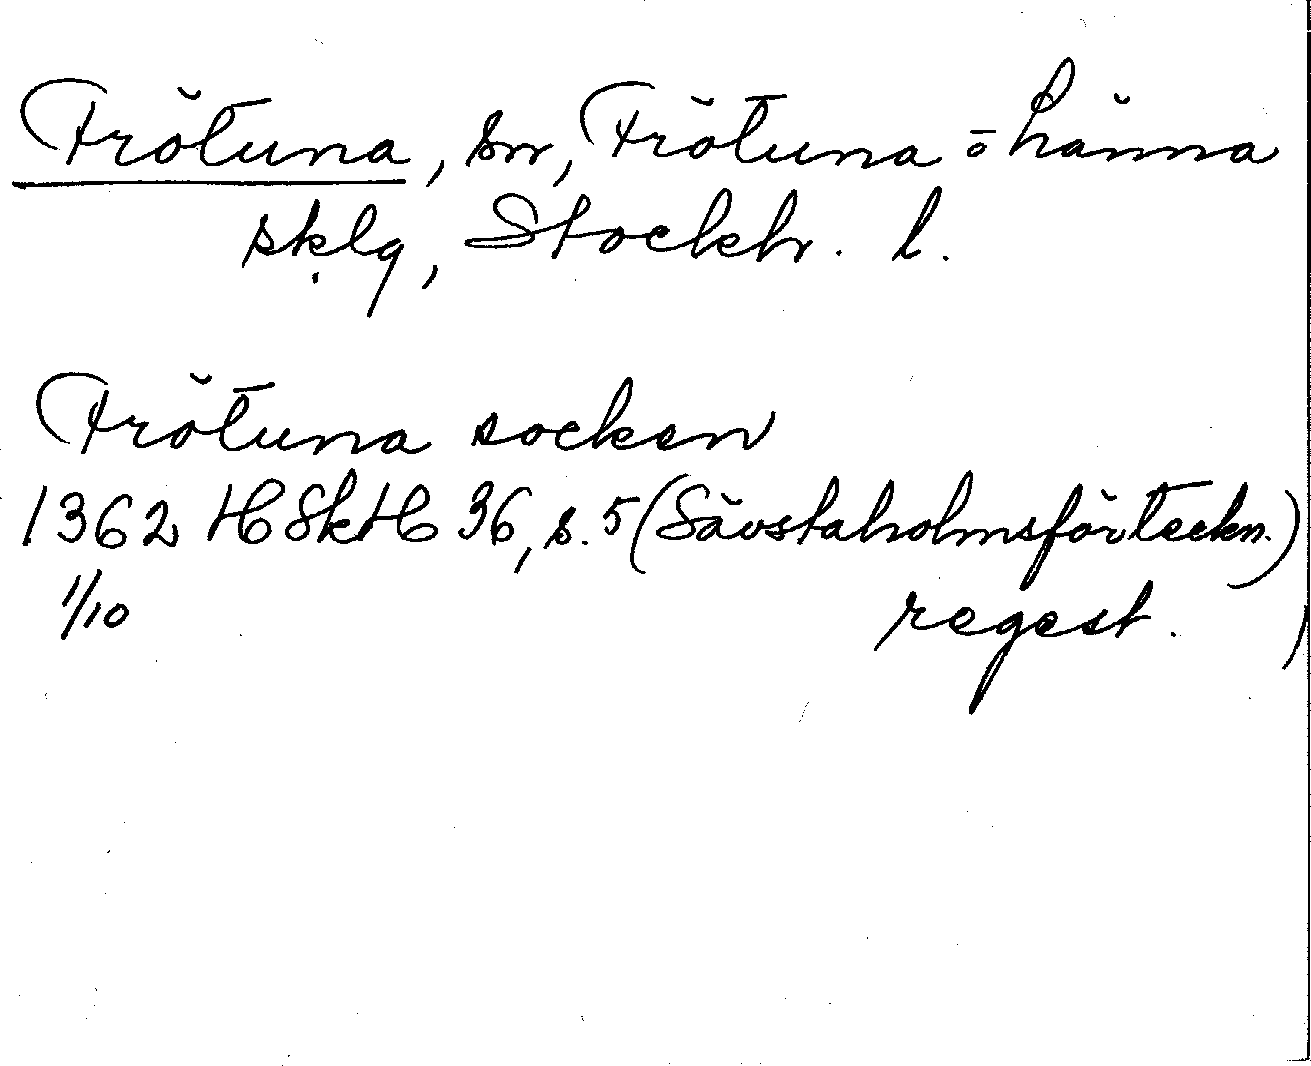 Frötuna, sn, Frötuna o Länna
sklg, Stockh. l.
Frötuna socken
1362 HSkH 36, s. 5 (Sävstaholmsförteckn.)
1/10 regest.)